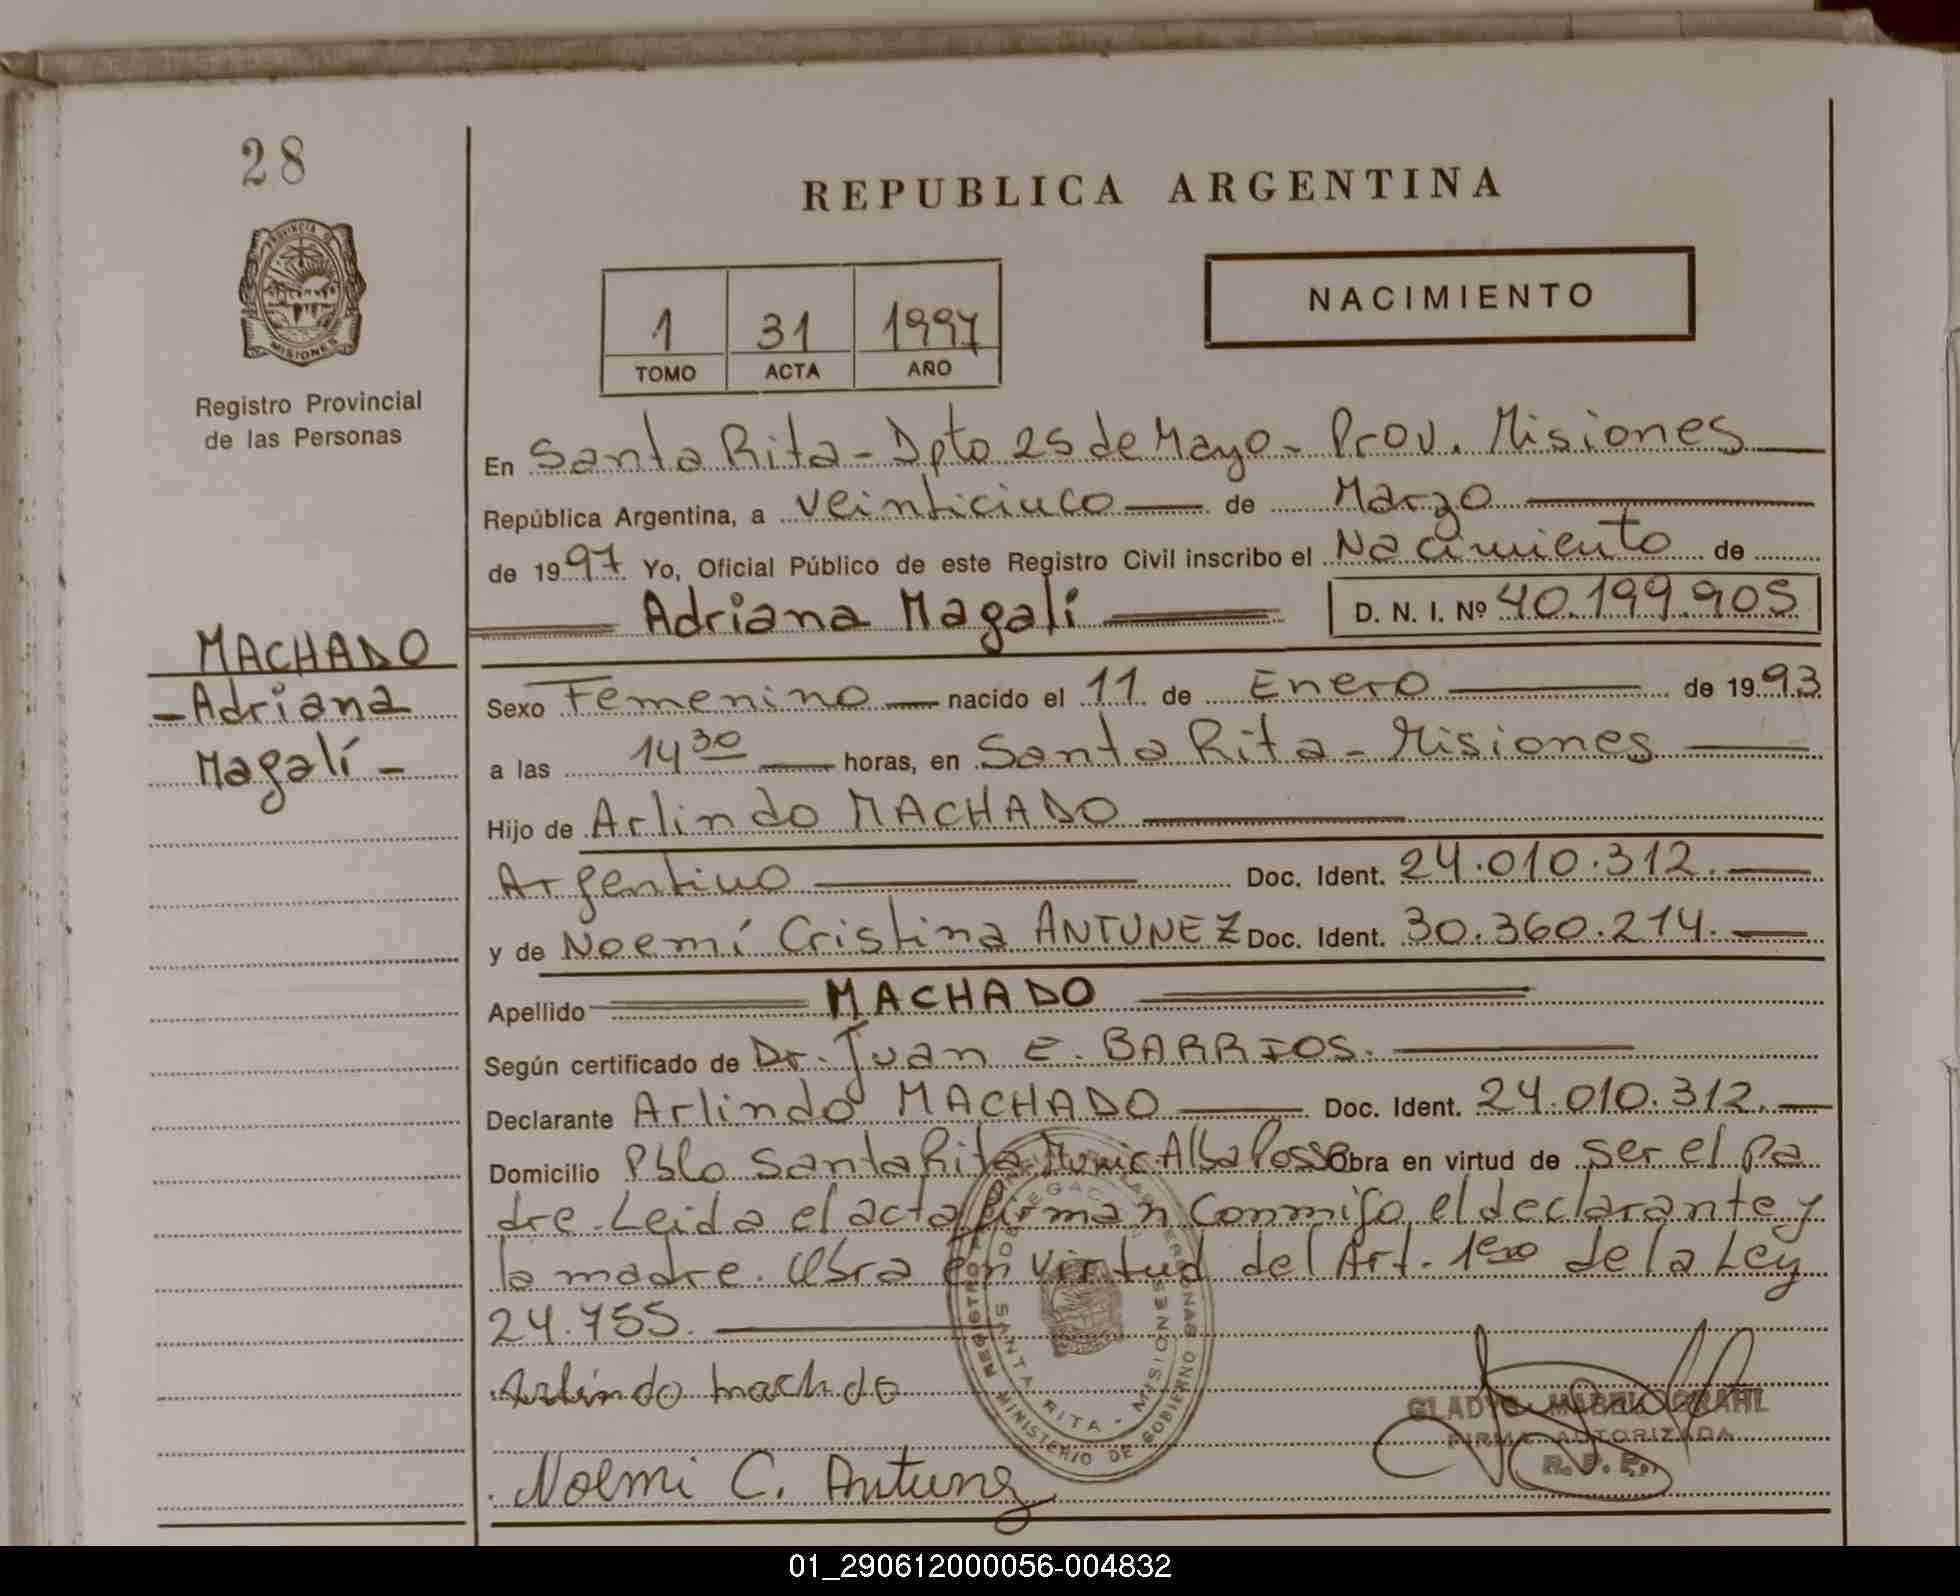 28
REPUBLICA ARGENTINA
PROVINCIA DE
MISIONES
Registro Provincial
de las Personas
1 31 1997
TOMO ACTA AÑO
NACIMIENTO
En Santa Rita - Dpto 25 de Mayo - Prov. Misiones
República Argentina, a veinticinco de Marzo
de 1997 Yo, Oficial Público de este Registro Civil inscribo el Nacimiento de
Adriana Magali D. N. I. Nº 40.199.905
MACHADO
- Adriana
Magalí -
Sexo Femenino nacido el 11 de Enero de 1993
a las 14 30 horas, en Santa Rita - Misiones
Hijo de Arlindo MACHADO
Argentino Doc. Ident. 24.010.312.
y de Noemí Cristina ANTUNEZ Doc. Ident. 30.360.214.
Apellido MACHADO
Según certificado de Dr. Juan E. BARRIOS.
Declarante Arlindo MACHADO Doc. Ident. 24.010.312.
Domicilio Pblo Santa Rita Munic. Alba Posse Obra en virtud de ser el pa
dre. Leida el acta firman conmigo el declarante y
la madre. Obra en virtud del Art. 1ero de la Ley
24.755.
Arlindo machdo
Noemi C. Antunez
SANTA RITA - MISIONES
MINISTERIO DE GOBIERNO
GLADYS MABEL GRAHL
FIRMA AUTORIZADA
R. P. P.
01_290612000056-004832